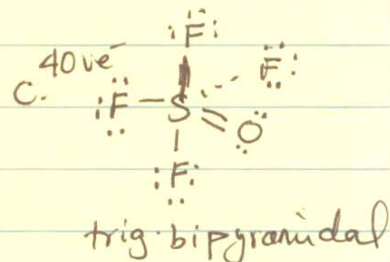 :F:
40 ve⁻
F:
C.
:F-S=O
:F:
trig. bipyramidal